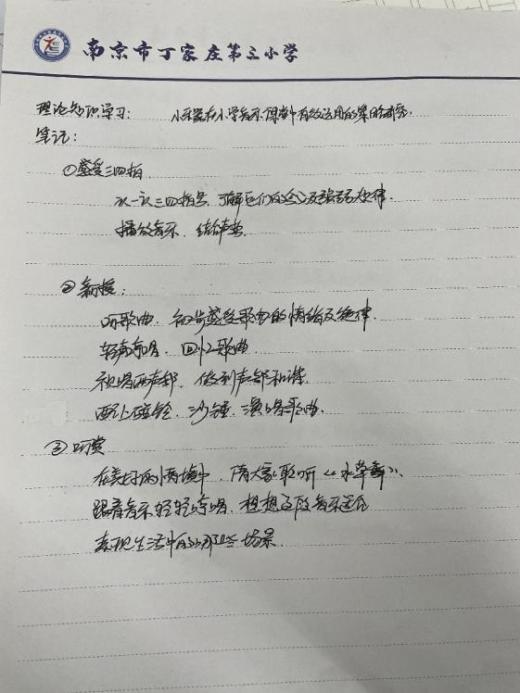 南京市丁家庄第三小学
理论知识学习： 小乐器在小学音乐课堂中有效运用的策略研究
笔记：
①感受三四拍
认一认三四拍号，了解它们的含义及强弱规律.
播放音乐，
②新授：
听歌曲，初步感受歌曲的情绪及旋律.
轻声哼唱，回忆歌曲
视唱两声部，做到声部和谐.
配上碰铃，沙锤，演唱歌曲.
③听赏
在美好的情境中，请大家聆听《水草舞》，
跟着音乐轻轻哼唱，想想这段音乐适合
表现生活中的哪些场景.